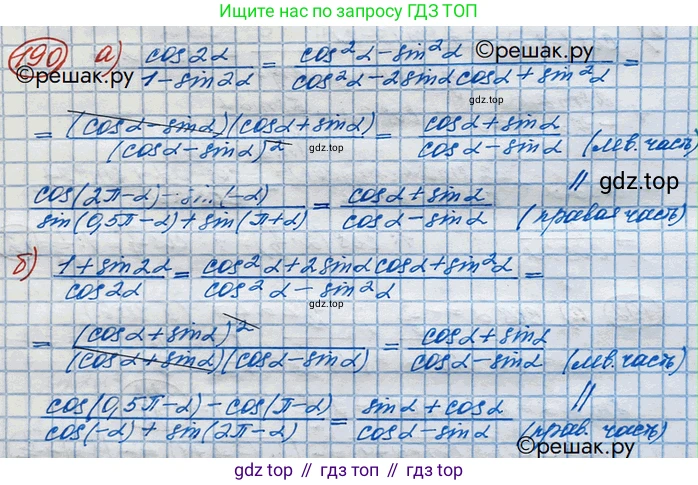 Ищите нас по запросу ГДЗ ТОП
190 а) cos2α/(1-sin2α) = (cos²α-sin²α)/(cos²α-2sinα cosα+sin²α) =
©решак.ру
©решак.ру
gdz.top
= (cosα-sinα)(cosα+sinα)/(cosα-sinα)² = (cosα+sinα)/(cosα-sinα) (лев. часть)
gdz.top
gdz.top
// gdz.top
cos(2π-α) - (-α)/(sin(0,5π-α)+sin(π+α)) = (cosα+sinα)/(cosα-sinα) (правая часть)
gdz.top
б) (1+sin2α)/cos2α = (cos²α+2sinα cosα+sin²α)/(cos²α-sin²α) =
gdz.top
= (cosα+sinα)²/((cosα+sinα)(cosα-sinα)) = (cosα+sinα)/(cosα-sinα) (лев. часть)
gdz.top
//
(cos(0,5π-α)-cos(π-α))/(cos(-α)+sin(2π-α)) = (sinα+cosα)/(cosα-sinα) (прав. часть)
©решак.ру
gdz top // гдз топ // gdz.top